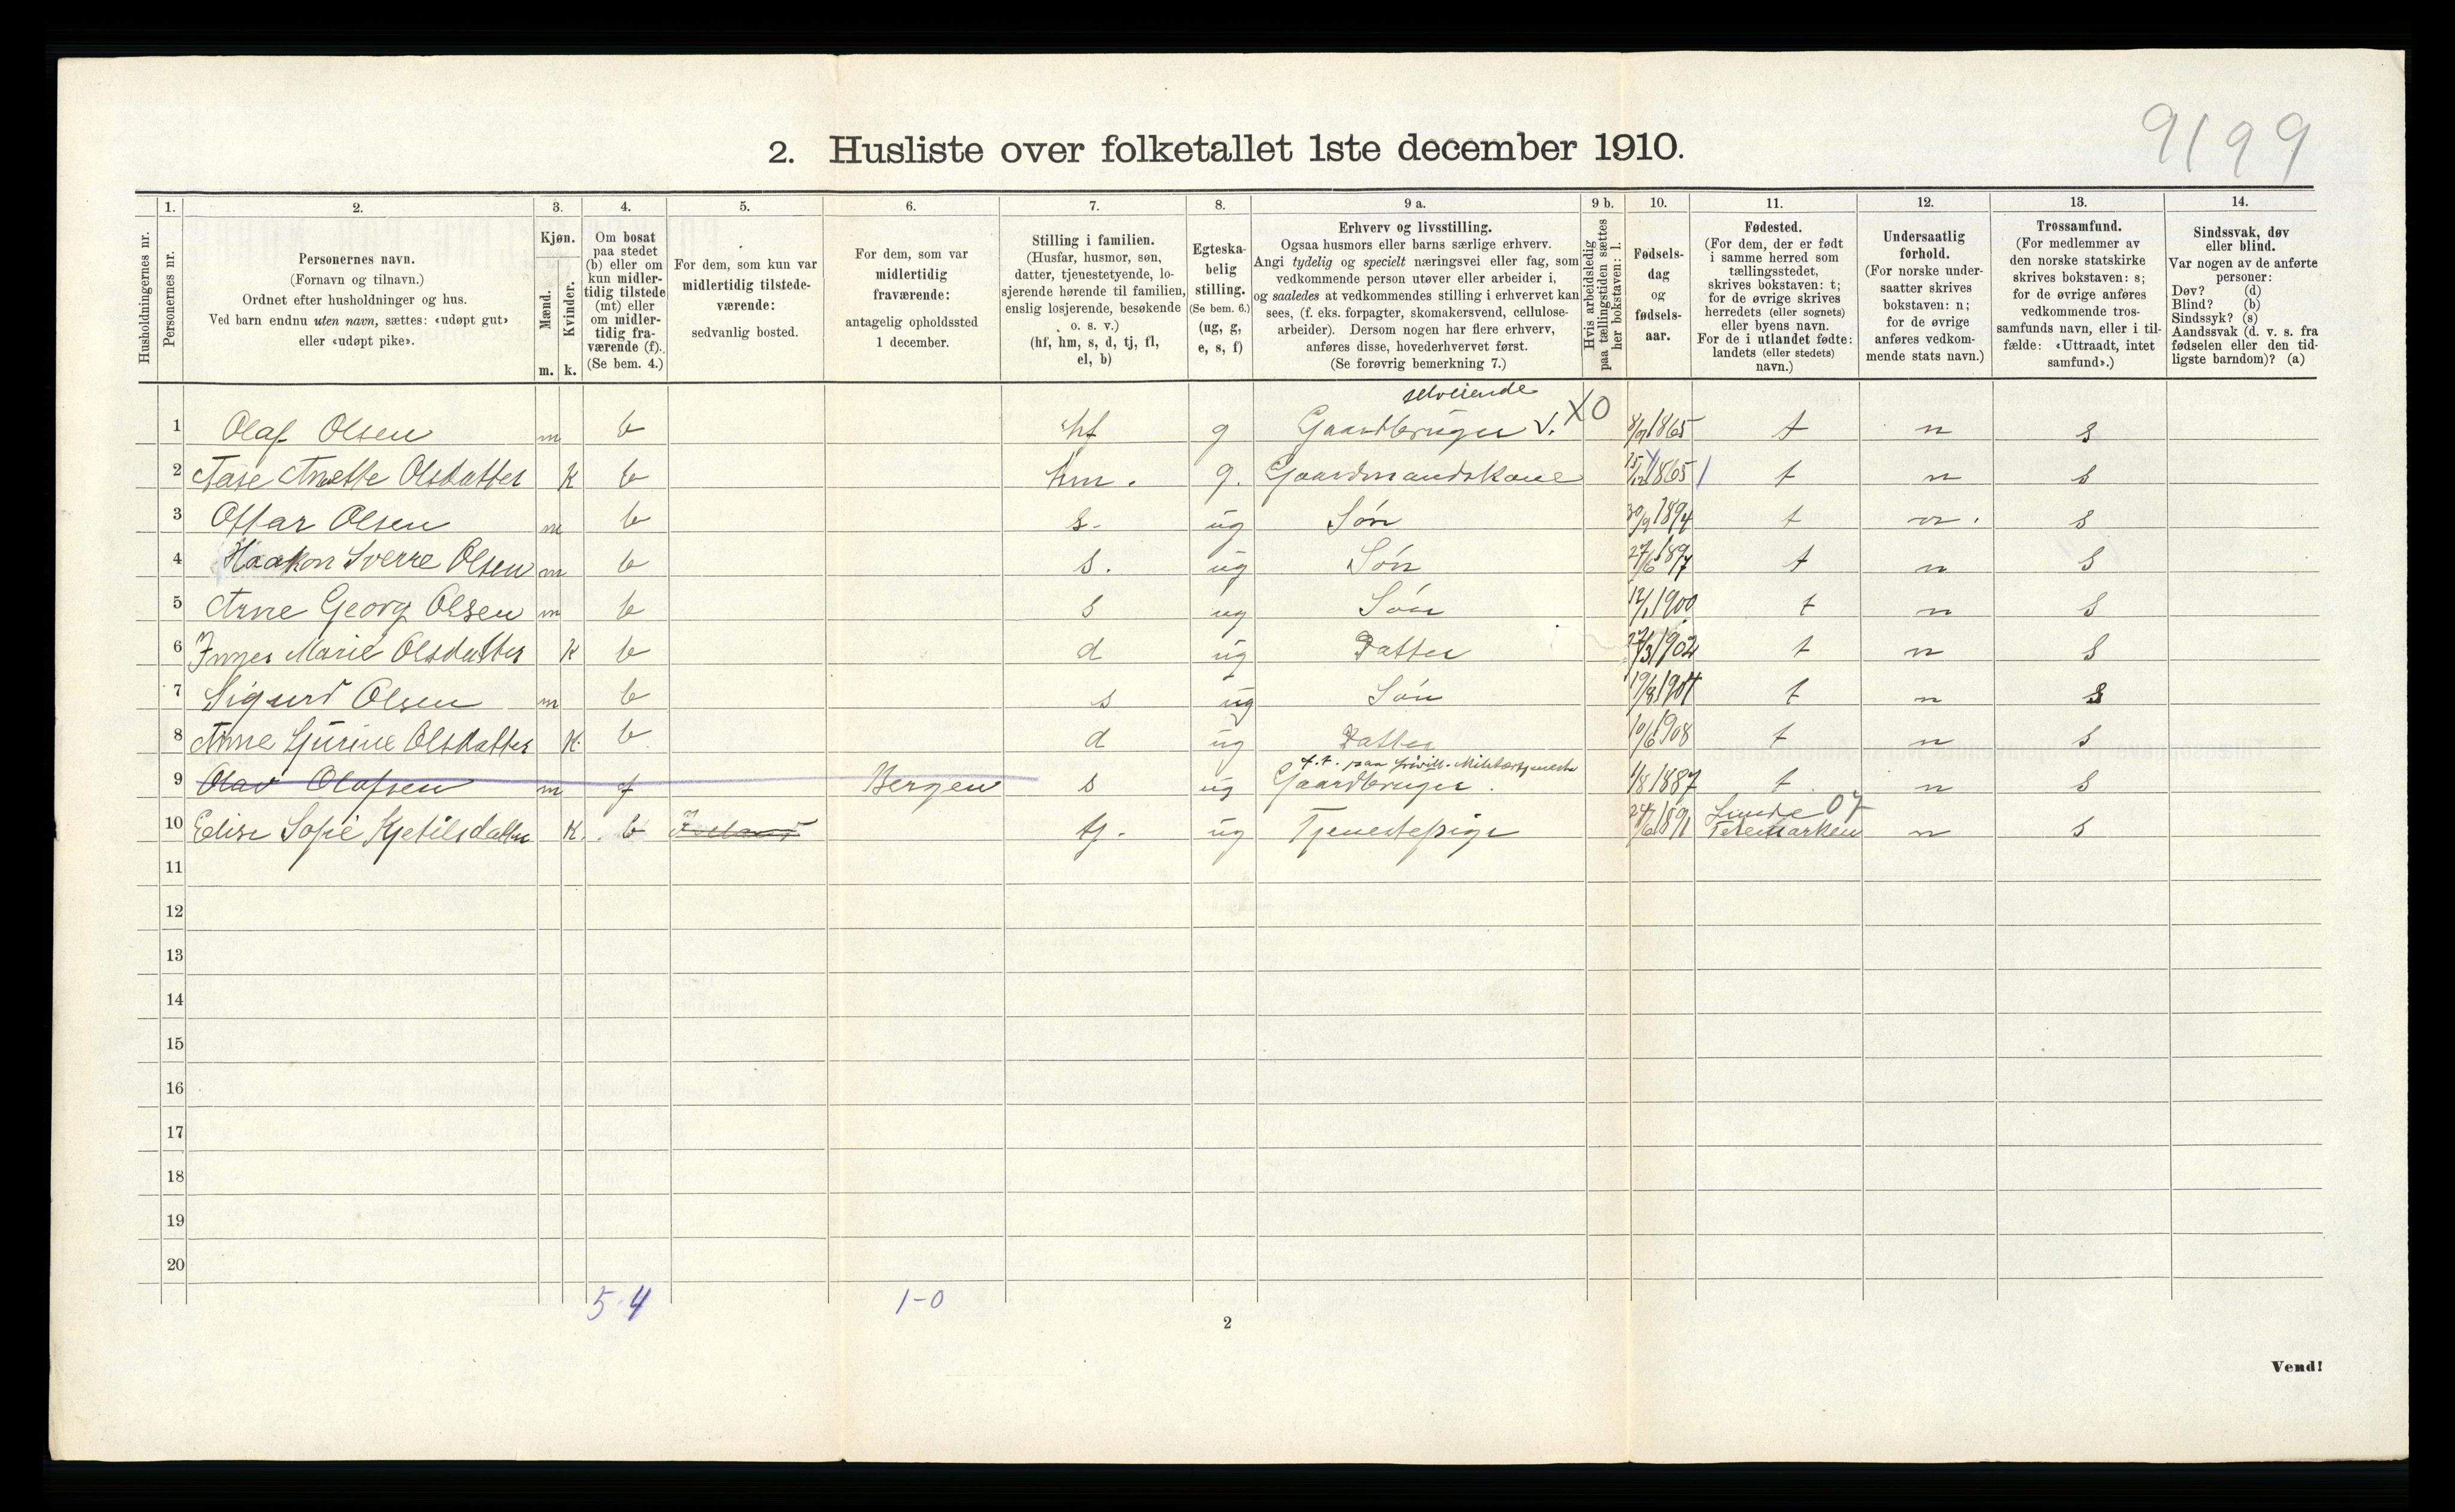 9199
2. Husliste over folketallet 1ste december 1910.
Husholdningernes nr.
1.
Personernes nr.
2.
Personernes navn.
(Fornavn og tilnavn.)
Ordnet efter husholdninger og hus.
Ved barn endnu uten navn, sættes: «udøpt gut»
eller «udøpt pike».
3.
Kjøn.
Mænd.
Kvinder.
m. k.
4.
Om bosat
paa stedet
(b) eller om
kun midler-
tidig tilstede
(mt) eller
om midler-
tidig fra-
værende (f).
(Se bem. 4.)
5.
For dem, som kun var
midlertidig tilstede-
værende:
sedvanlig bosted.
6.
For dem, som var
midlertidig
fraværende:
antagelig opholdssted
1 december.
7.
Stilling i familien.
(Husfar, husmor, søn,
datter, tjenestetyende, lo-
sjerende hørende til familien,
enslig losjerende, besøkende
o. s. v.)
(hf, hm, s, d, tj, fl,
el, b)
8.
Egteska-
belig
stilling.
(Se bem. 6.)
(ug, g,
e, s, f)
9 a.
Erhverv og livsstilling.
Ogsaa husmors eller barns særlige erhverv.
Angi tydelig og specielt næringsvei eller fag, som
vedkommende person utøver eller arbeider i,
og saaledes at vedkommendes stilling i erhvervet kan
sees, (f. eks. forpagter, skomakersvend, cellulose-
arbeider). Dersom nogen har flere erhverv,
anføres disse, hovederhvervet først.
(Se forøvrig bemerkning 7.)
9 b.
Hvis arbeidsledig
paa tællingstiden sættes
her bokstaven: l.
10.
Fødsels-
dag
og
fødsels-
aar.
11.
Fødested.
(For dem, der er født
i samme herred som
tællingsstedet,
skrives bokstaven: t;
for de øvrige skrives
herredets (eller sognets)
eller byens navn.
For de i utlandet fødte:
landets (eller stedets)
navn.)
12.
Undersaatlig
forhold.
(For norske under-
saatter skrives
bokstaven: n;
for de øvrige
anføres vedkom-
mende stats navn.)
13.
Trossamfund.
(For medlemmer av
den norske statskirke
skrives bokstaven: s;
for de øvrige anføres
vedkommende tros-
samfunds navn, eller i til-
fælde: «Uttraadt, intet
samfund».)
14.
Sindssvak, døv
eller blind.
Var nogen av de anførte
personer:
Døv? (d)
Blind? (b)
Sindssyk? (s)
Aandssvak (d. v. s. fra
fødselen eller den tid-
ligste barndom)? (a)
selveiende
1 Olaf Olsen m b hf g Gaardbruger V. XO 8/9 1865 t n s
2 Aase Anette Olsdatter K b hm. g. Gaardmandskone 15/12 1865 t n s
3 Ottar Olsen m b s. ug Søn 30/9 1894 t n. s
4 Haakon Sverre Olsen m b s. ug Søn 27/6 1897 t n s
5 Arne Georg Olsen m b s ug Søn 12/1 1900 t n s
6 Inger Marie Olsdatter K b d ug Datter 27/3 1902 t n s
7 Sigurd Olsen m b s ug Søn 19/8 1904 t n s
8 Anne Gurine Olsdatter K. b d ug Datter 10/6 1908 t n s
f.t. paa frivill. Militærtjeneste
9 Olav Olafsen m f Bergen s ug Gaardbruger. 1/8 1887 t. n s
Lunde 07
10 Elise Sofie Kjetilsdatter K. b tj. ug Tjenestepige 24/6 1891 Telemarken n s
11
12
13
14
15
16
17
18
19
20
5-4 1-0
2
Vend!